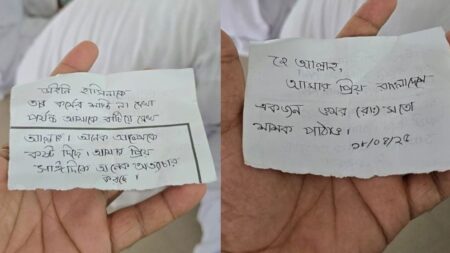 হাসিনাকে
তার কর্মের শাস্তি না দেখা
পর্যন্ত আমাকে বাঁচিয়ে রেখো
আল্লাহ। অনেক আলেমকে
কষ্ট দিছে। আমার প্রিয়
সাঈদীকে অনেক অত্যাচার
করছে।
হে আল্লাহ,
আমার প্রিয় বাংলাদেশে
একজন ওমর (রাঃ) মতো
শাসক পাঠাও।